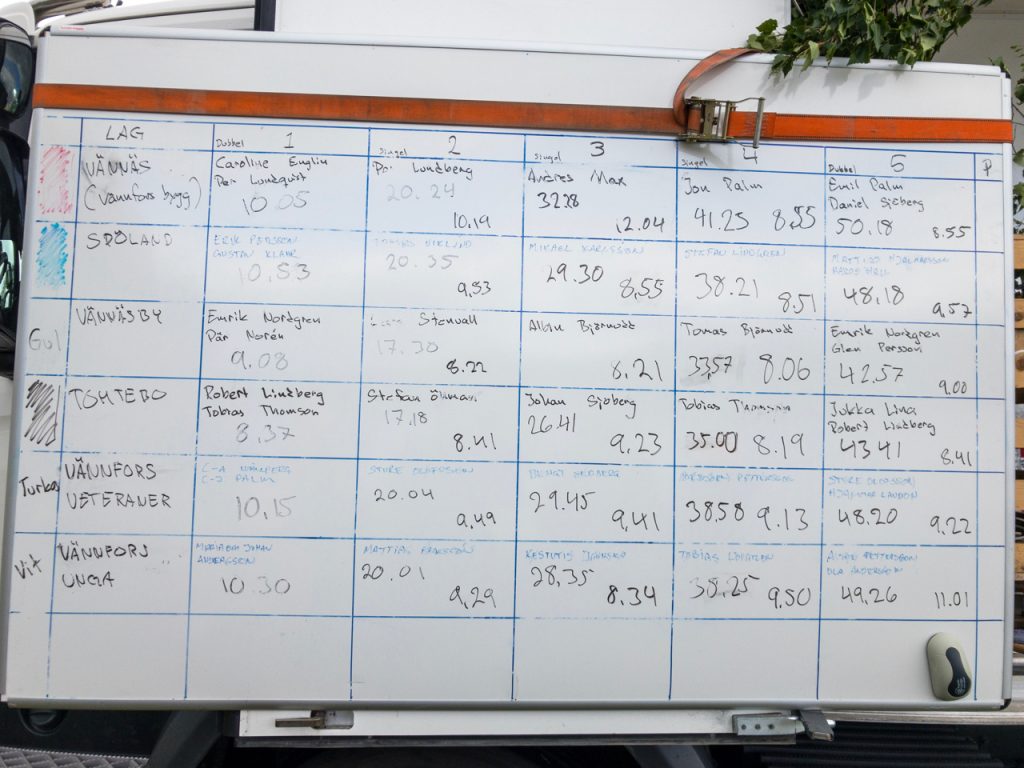 LAG
Dubbel 1
Singel 2
Singel 3
Singel 4
Dubbel 5
P
VÄNNÄS
(Vännfors bygg)
Caroline Englin
Per Lundqvist
10 05
Lundberg
20.29
10.19
Andres Max
3228
12.04
Jon Palm
41.25 8.55
Emil Palm
Daniel Sjöberg
50.18 8.55
SPÖLAND
ERIK PERSSON
GUSTAV
10.53
20.35
9.53
MIKAEL KARLSSON
29.30
8,55
STEFAN LINDGREN
38.21
8.51
48,18
9,57
Gul
VÄNNÄSBY
Emrik Nordgren
Pär Norén
9.08
Stenvall
17.30
8.22
Allan
8.21
Tomas
33,57 8.06
Emrik Nordgren
Glen Persson
42.57
9.00
TOMTEBO
Robert Lindberg
Tobias Thomson
8.37
Stefan Öhman
17.18
8.41
Johan Sjöberg
26.41
9,23
Tobias Thomson
35.00 8.19
Jukka
Robert Lindberg
43 41
8.41
Turkos
VÄNNFORS
VETERANER
C-A
C-J PALM
10.15
STURE OLOFSSON
20.04
9.49
29.45
9,41
PETTERSSON
38,58 9.13
STURE OLOFSSON
48.20
9,22
Vit
VÄNNFORS
UNGA
JOHAN
ANDERSSON
10.30
MATTIAS
20.01
9,29
28,35
8.34
TOBIAS
38.25 9,50
PETTERSSON
OLA ANDERSSON
49,26 11.01